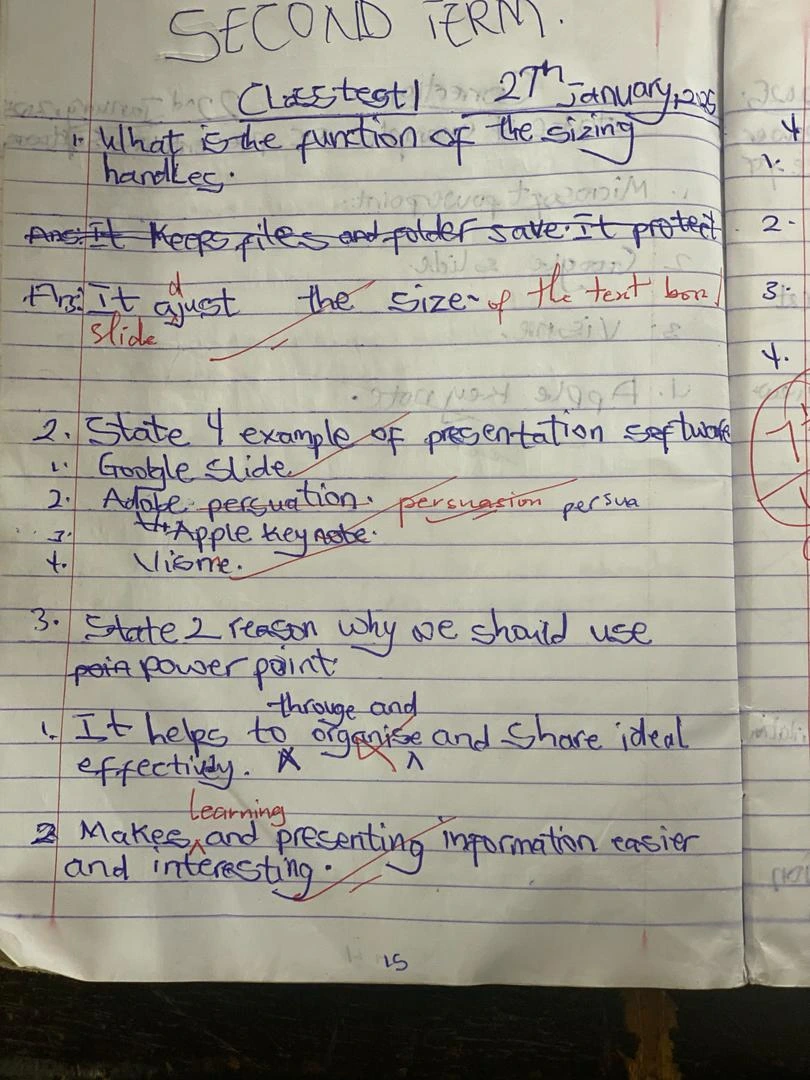 SECOND TERM.
Classtest 1 27th January, 2025
1. What is the function of the sizing
handles.
Ans: It Keeps files and folder save. It protect
Ans: It adjust the size of the text box/
slide
2. State 4 example of presentation software
1. Google slide
2. Adobe persuation. persuasion persua
3. Apple keynote.
4. Visme.
3. State 2 reason why we should use
poin power point
througe and
1. It helps to organise and share ideal
effectivly.
Learning
2 Makes and presenting information easier
and interesting.
15
4
1.
2.
3.
4.